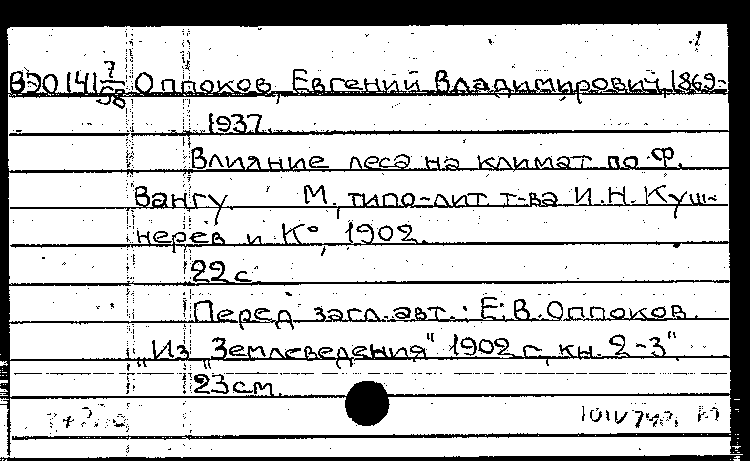 1
ВЭО 141 7/58 Оппоков, Евгений Владимирович, 1869-
1937.
Влияние леса на климат по Ф.
Вангу. М., типо-лит т-ва И.Н. Куш-
нерев и К°, 1902.
22 с.
Перед загл. авт.: Е.В. Оппоков.
„Из „Землеведения" 1902 г., кн. 2-3".
23 см.